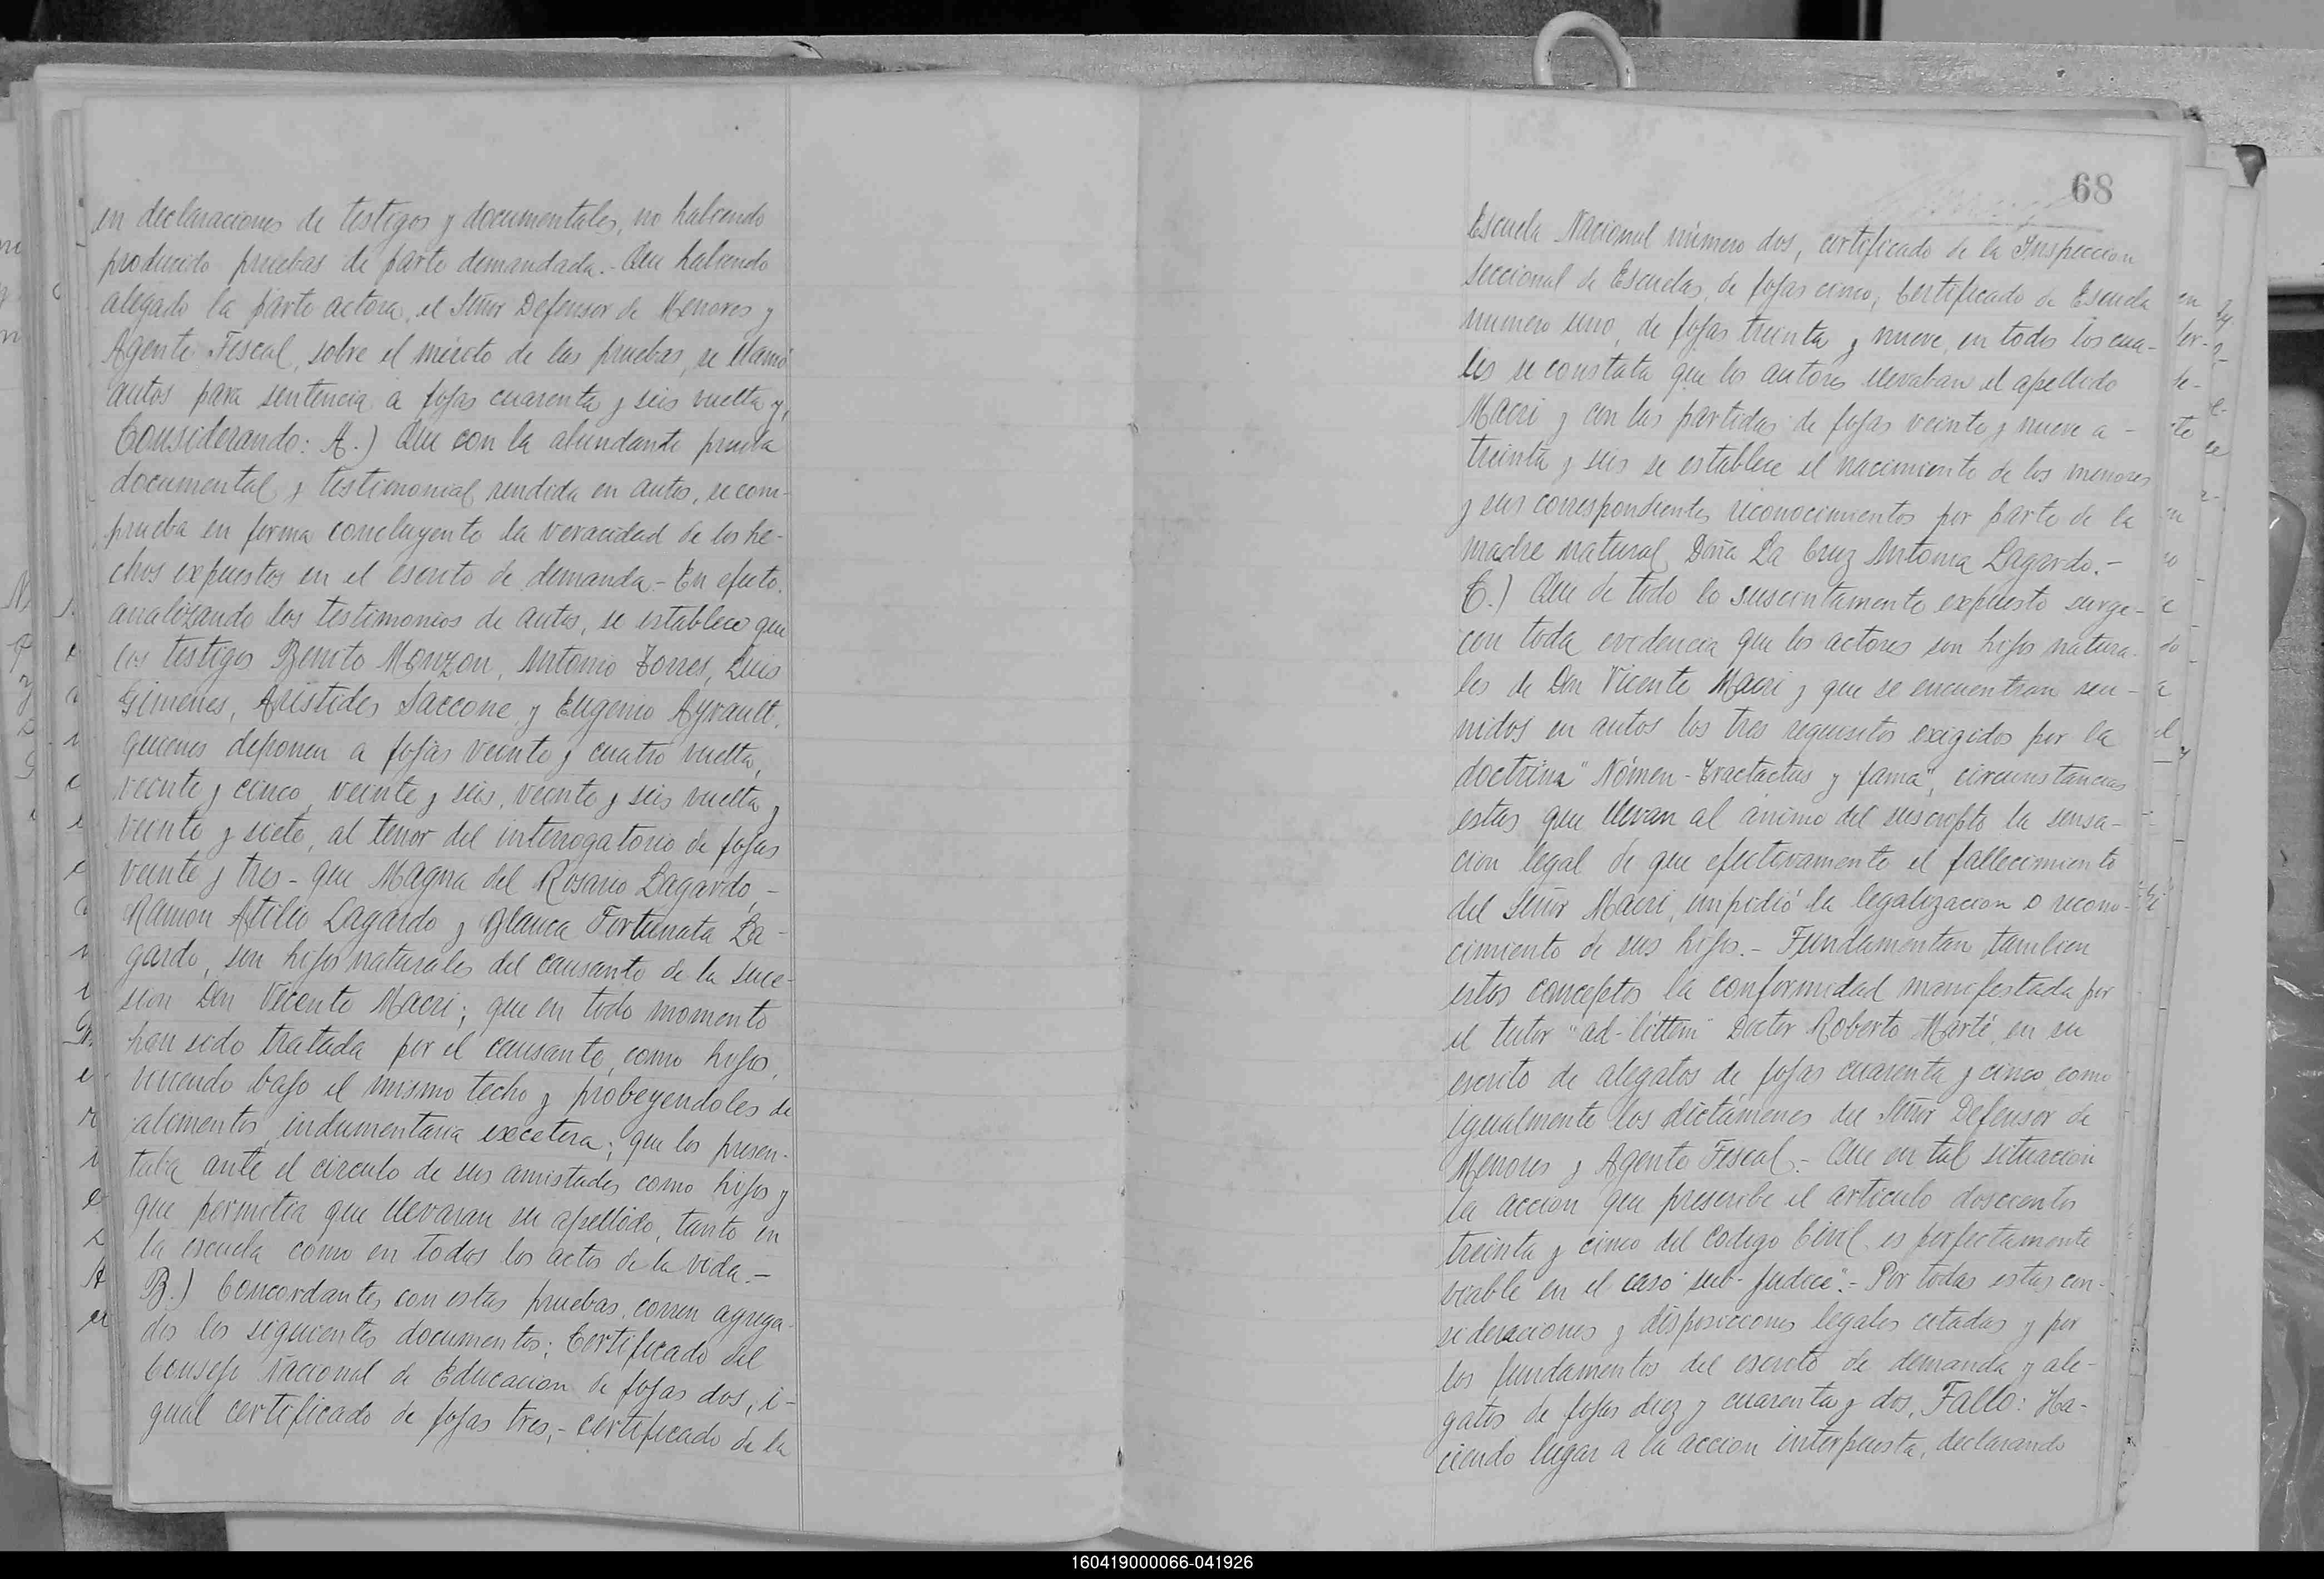 en declaraciones de testigos y documentales, no habiendo
producido pruebas de parte demandada.- Que habiendo
alegado la parte actora, el Señor Defensor de Menores y
Agente Fiscal, sobre el mérito de las pruebas, se llamó
autos para sentencia a fojas cuarenta y seis vuelta y,
Considerando: A.) Que con la abundante prueba
documental y testimonial rendida en autos, se com-
prueba en forma concluyente la veracidad de los he-
chos expuestos en el escrito de demanda.- En efecto,
analizando los testimonios de autos, se establece que
los testigos Benito Monzon, Antonio Torres, Luis
Gimenes, Aristides Saccone y Eugenio Ayrault,
quienes deponen a fojas veinte y cuatro vuelta,
veinte y cinco, veinte y seis, veinte y seis vuelta y
veinte y siete, al tenor del interrogatorio de fojas
veinte y tres - que Magna del Rosario Lagardo, -
Ramon Atilio Lagardo y Blanca Fortunata La-
gardo, son hijos naturales del causante de la suce-
sion Don Vicente Macri; que en todo momento
han sido tratada por el causante, como hijos,
viviendo bajo el mismo techo y probeyendoles de
alimentos, indumentaria execetera; que los presen-
taba ante el circulo de sus amistades como hijos y
que permitia que llevaran su apellido, tanto en
la escuela como en todos los actos de la vida.-
B.) Concordantes con estas pruebas, corren agrega-
dos los siguientes documentos: Certificado del
Consejo Nacional de Educacion de fojas dos, i-
gual certificado de fojas tres,- certificado de la
68
Escuela Nacional número dos, certificado de la Inspeccion
seccional de Escuelas, de fojas cinco, Certificado de Escuela
numero uno, de fojas treinta y nueve, en todos los cua-
les se constata que los autores llevaban el apellido
Macri y con las partidas de fojas veinte y nueve a -
treinta y seis se establece el nacimiento de los menores
y sus correspondientes reconocimientos por parte de la
madre natural Doña La Cruz Antonia Lagardo.-
C.) Que de todo lo suscintamente expuesto surge-
con toda evidencia que los actores son hijos natura-
les de Don Vicente Macri y que se encuentran reu-
nidos en autos los tres requisitos exigidos por la
doctrina "Nómen - Tractactus y fama", circunstancias
estas que llevan al ánimo del suscripto la sensa-
cion legal de que efectivamente el fallecimiento
del Señor Macri, impidió la legalizacion o recono-
cimiento de sus hijos.- Fundamentan tambien
estos conceptos la conformidad manifestada por
el tutor "ad-littem" Doctor Roberto Marté, en su
escrito de alegatos de fojas cuarenta y cinco, como
igualmente los dictámenes del Señor Defensor de
Menores y Agente Fiscal.- Que en tal situacion
la accion que prescribe el articulo doscientos
treinta y cinco del Codigo Civil es perfectamente
viable en el caso "sub-judice".- Por todas estas con-
sideraciones y disposiciones legales citadas y por
los fundamentos del escrito de demanda y ale-
gatos de fojas diez y cuarenta y dos, Fallo: Ha-
ciendo lugar a la accion interpuesta, declarando
160419000066-041926